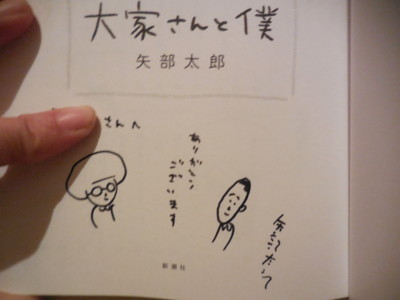 大家さんと僕
矢部太郎
さんへ
ありがとう
ございます
矢部太郎
新潮社